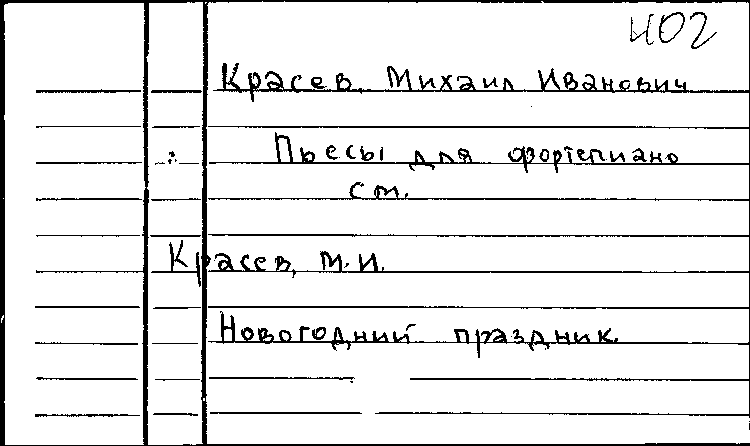 402
Красев, Михаил Иванович
: Пьесы для фортепиано
см.
Красев, М.И.
Новогодний праздник.